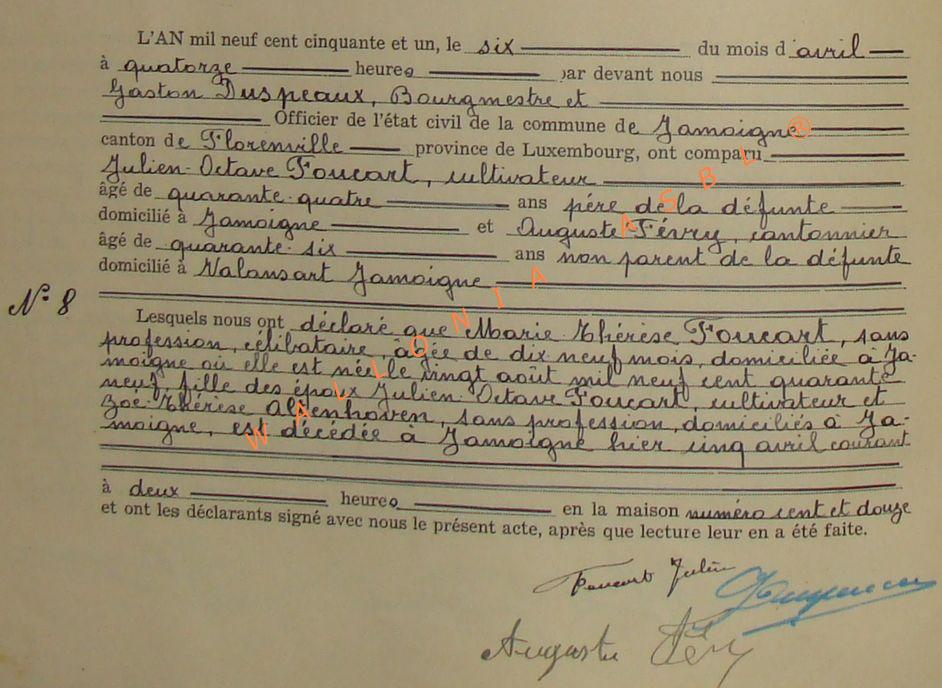 L'AN mil neuf cent cinquante et un, le six du mois d'avril
à quatorze heures par devant nous
Gaston Duspeaux, Bourgmestre et
Officier de l'état civil de la commune de Jamoigne
canton de Florenville province de Luxembourg, ont comparu
Julien-Octave Foucart, cultivateur
âgé de quarante-quatre ans père de la défunte
domicilié à Jamoigne et Auguste Févry, cantonnier
âgé de quarante-six ans non parent de la défunte
domicilié à Valansart Jamoigne
N° 8
Lesquels nous ont déclaré que Marie-Thérèse Foucart, sans
profession, célibataire, âgée de dix-neuf mois, domiciliée à Ja-
moigne où elle est née le vingt août mil neuf cent quarante
neuf, fille des époux Julien-Octave Foucart, cultivateur et
Zoé-Thérèse Alsenhoven, sans profession, domiciliés à Ja-
moigne, est décédée à Jamoigne hier cinq avril courant
à deux heures en la maison numéro cent et douze
et ont les déclarants signé avec nous le présent acte, après que lecture leur en a été faite.
Foucart Julien
Auguste Févry
WALLONIA ASBL®